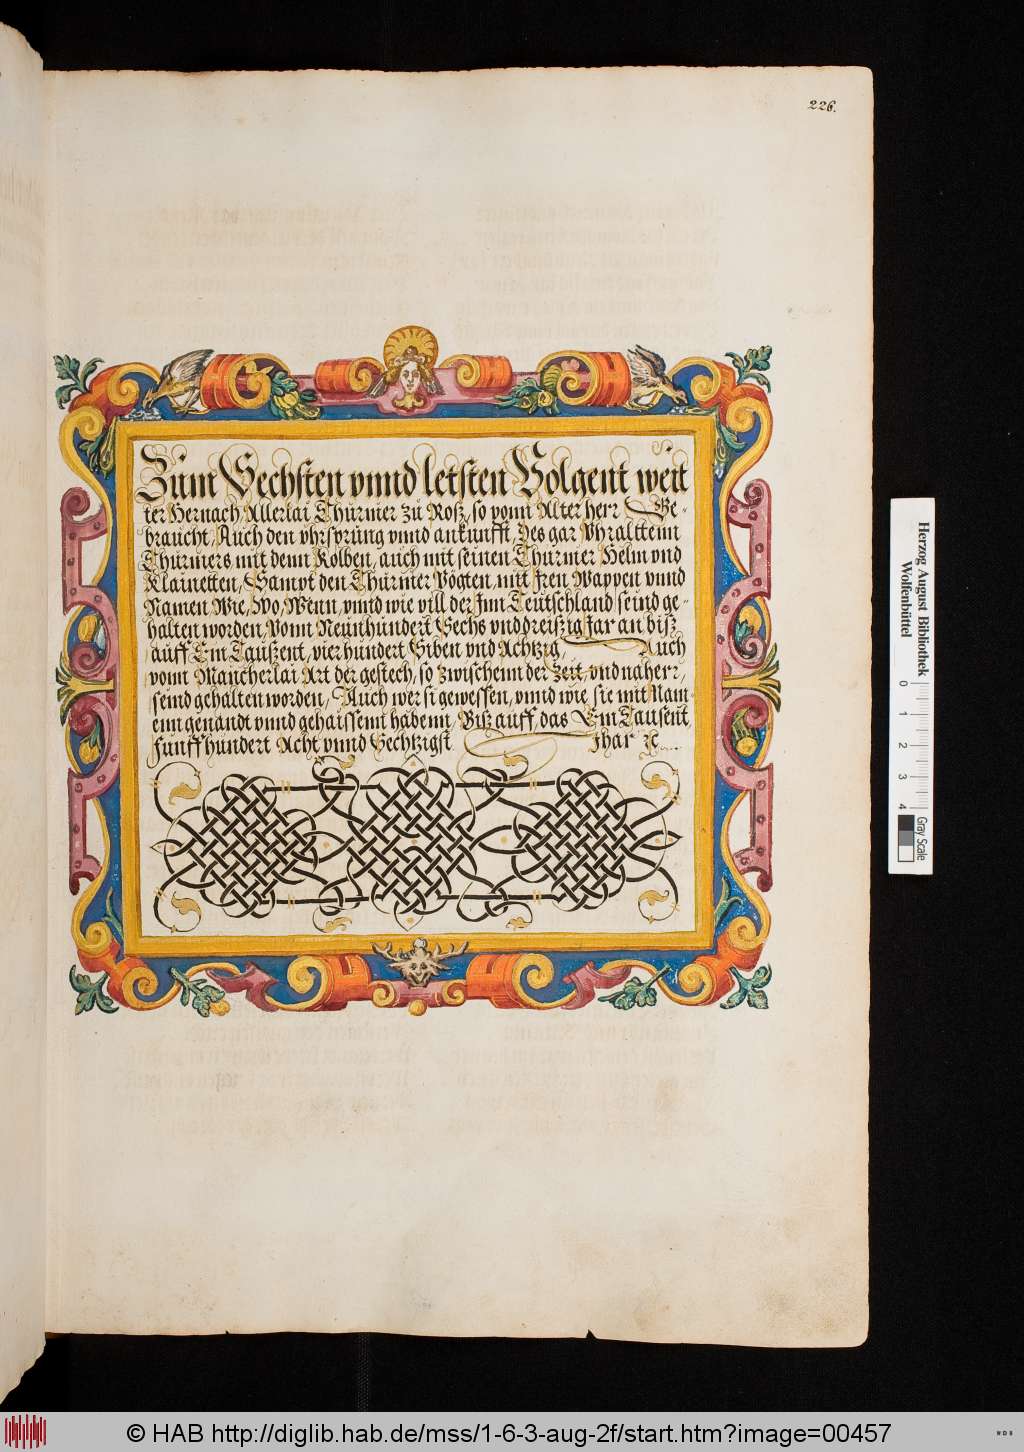 226.
Zum Sechsten vnnd letsten Volgent weit
ter Hernach, Allerlai Thurnier zu Roß, so vonn Alter herr Ge-
braucht, Auch den vhrsprung vnnd ankunfft, Des gar Vhralttenn
Thurniers mit denn Kolben, auch mit seinen Thurnier Helm vnd
Klainetten, Sampt den Thurnier Vögten, mit Jren Wappen vnnd
Namen Wie, Wo, Wenn, vnnd wie vill der Jnn Teutschland seind ge-
halten worden, Vonn Neunhundert Sechs vnd dreißig Jar an biß
auff Ein Taußent, vier hundert Siben vnd Achtzig, Auch
vonn Mancherlai Art der gestech, so zwischenn der Zeit, vnd naherr,
seind gehalten worden, Auch wer si gewessen, vnnd wie sie mit Nam-
enn genandt vnnd gehaissenn habenn, Biß auff, das Ein Tausent,
funff hundert Acht vnnd Sechtzigst Jhar ꝛc
Herzog August Bibliothek
Wolfenbüttel
0 1 2 3 4
Gray Scale
© HAB http://diglib.hab.de/mss/1-6-3-aug-2f/start.htm?image=00457